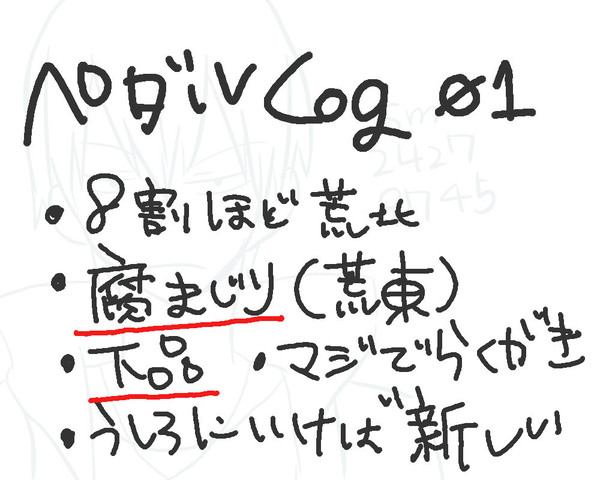 ペダルLog 01
・8割ほど荒北
・腐まじり(荒東)
・下品 ・マジでらくがき
・うしろにいけば新しい